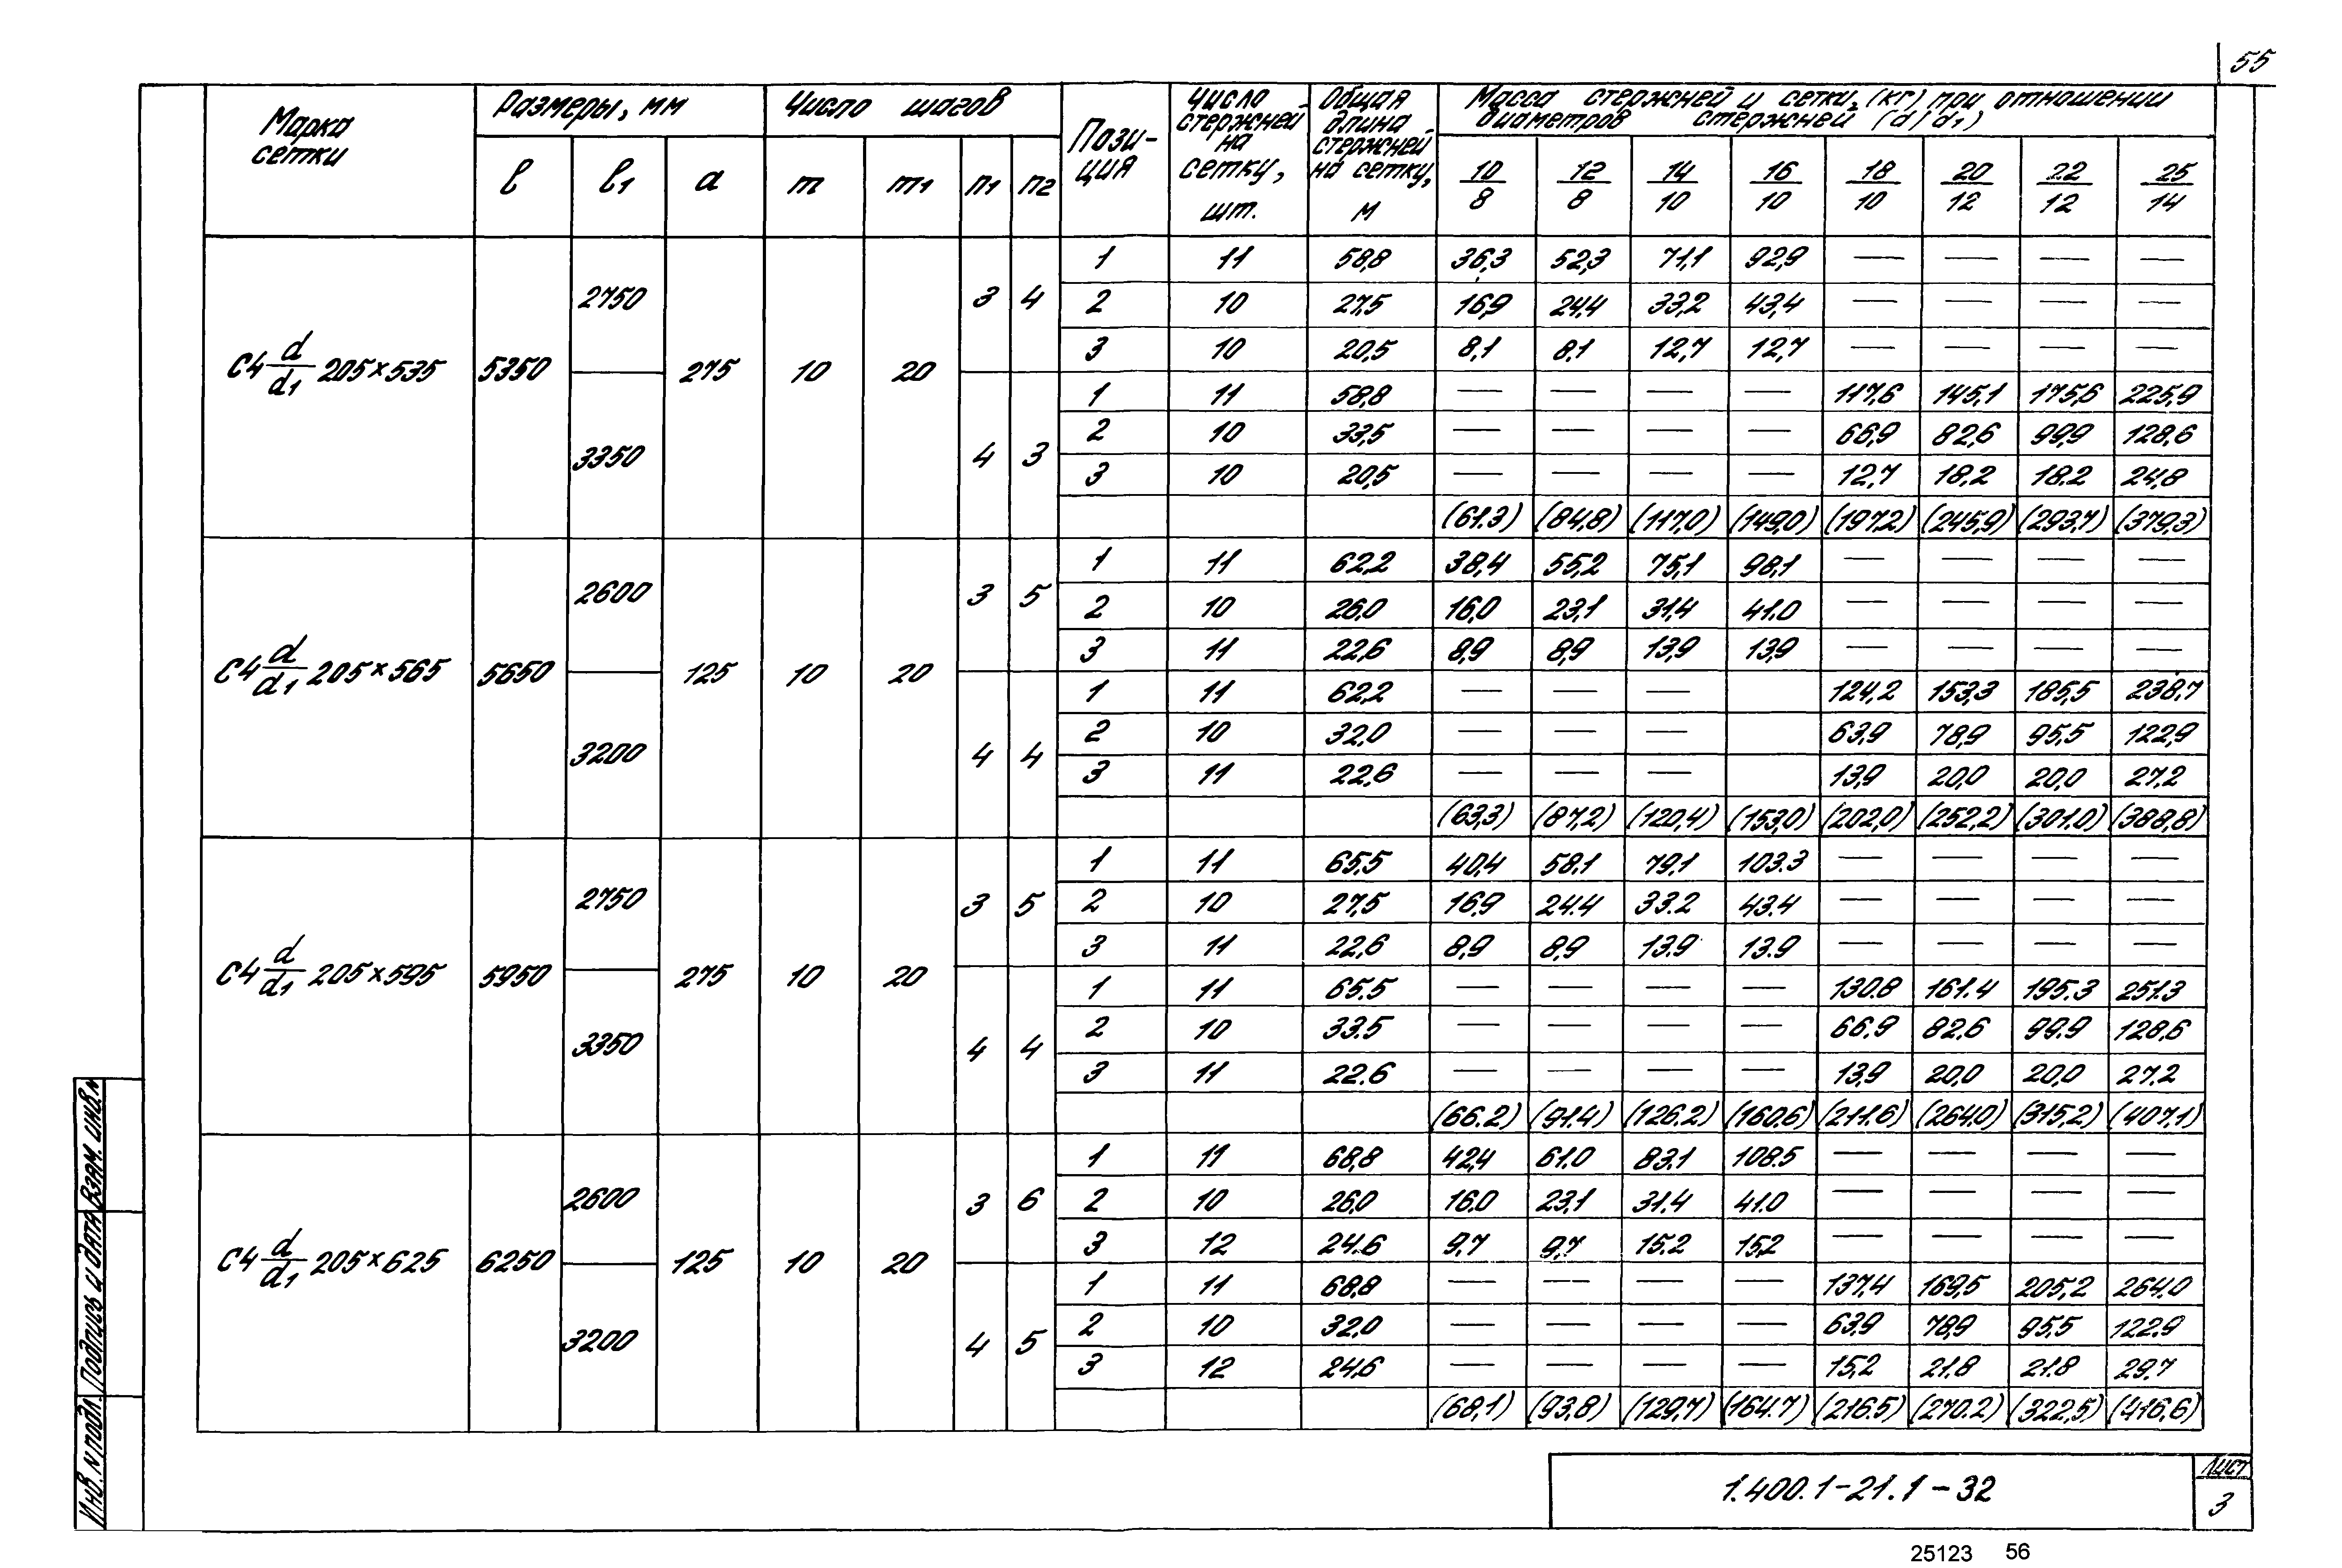 55
Марка сетки | Размеры, мм | Число шагов | Пози-ция | Число стержней на сетку, шт. | Общая длина стержней на сетку, м | Масса стержней и сетки, (кг) при отношении диаметров стержней (d/d1)
l | l1 | a | m | m1 | n1 | n2 | 10/8 | 12/8 | 14/10 | 16/10 | 18/10 | 20/12 | 22/12 | 25/14
С4 d/d1 205×535 | 5350 | 275 | 10 | 20
2750 | 3 | 4
1 | 11 | 58,8 | 36,3 | 52,3 | 71,1 | 92,9 | — | — | — | —
2 | 10 | 27,5 | 16,9 | 24,4 | 33,2 | 43,4 | — | — | — | —
3 | 10 | 20,5 | 8,1 | 8,1 | 12,7 | 12,7 | — | — | — | —
3350 | 4 | 3
1 | 11 | 58,8 | — | — | — | — | 117,6 | 145,1 | 175,6 | 225,9
2 | 10 | 33,5 | — | — | — | — | 66,9 | 82,6 | 99,9 | 128,6
3 | 10 | 20,5 | — | — | — | — | 12,7 | 18,2 | 18.2 | 24,8
(61.3) | (84,8) | (117,0) | (149,0) | (197,2) | (245,9) | (293,7) | (379,3)
С4 d/d1 205×565 | 5650 | 125 | 10 | 20
2600 | 3 | 5
1 | 11 | 62,2 | 38,4 | 55,2 | 75,1 | 98,1 | — | — | — | —
2 | 10 | 26,0 | 16,0 | 23,1 | 31,4 | 41.0 | — | — | — | —
3 | 11 | 22,6 | 8,9 | 8,9 | 13,9 | 13,9 | — | — | — | —
3200 | 4 | 4
1 | 11 | 62,2 | — | — | — | | 124,2 | 153,3 | 185,5 | 238,7
2 | 10 | 32,0 | — | — | — | | 63,9 | 78,9 | 95,5 | 122,9
3 | 11 | 22,6 | — | — | — | | 13,9 | 20,0 | 20,0 | 27,2
(63,3) | (87,2) | (120,4) | (153,0) | (202,0) | (252,2) | (301.0) | (388,8)
С4 d/d1 205×595 | 5950 | 275 | 10 | 20
2750 | 3 | 5
1 | 11 | 65,5 | 40,4 | 58.1 | 79,1 | 103.3 | — | — | — | —
2 | 10 | 27,5 | 16,9 | 24.4 | 33.2 | 43.4 | — | — | — | —
3 | 11 | 22,6 | 8,9 | 8,9 | 13.9 | 13.9 | — | — | — | —
3350 | 4 | 4
1 | 11 | 65.5 | — | — | — | — | 130.8 | 161.4 | 195.3 | 251.3
2 | 10 | 33.5 | — | — | — | — | 66.9 | 82.6 | 99.9 | 128,6
3 | 11 | 22.6 | — | — | — | — | 13,9 | 20,0 | 20,0 | 27.2
(66.2) | (91.4) | (126.2) | (160.6) | (211.6) | (264.0) | (315,2) | (407,1)
С4 d/d1 205×625 | 6250 | 125 | 10 | 20
2600 | 3 | 6
1 | 11 | 68,8 | 42,4 | 61.0 | 83.1 | 108.5 | — | — | — | —
2 | 10 | 26,0 | 16.0 | 23,1 | 31.4 | 41.0 | — | — | — | —
3 | 12 | 24.6 | 9,7 | 9,7 | 15.2 | 15,2 | — | — | — | —
3200 | 4 | 5
1 | 11 | 68,8 | — | — | — | — | 137,4 | 169,5 | 205,2 | 264,0
2 | 10 | 32,0 | — | — | — | — | 63,9 | 78,9 | 95,5 | 122.9
3 | 12 | 24,6 | — | — | — | — | 15,2 | 21.8 | 21.8 | 29.7
(68,1) | (93,8) | (129,7) | (164.7) | (216.5) | (270.2) | (322,5) | (416,6)
Инв. N подл. | Подпись и дата | Взам. инв. N
1.400.1-21.1-32
Лист
3
25123 56